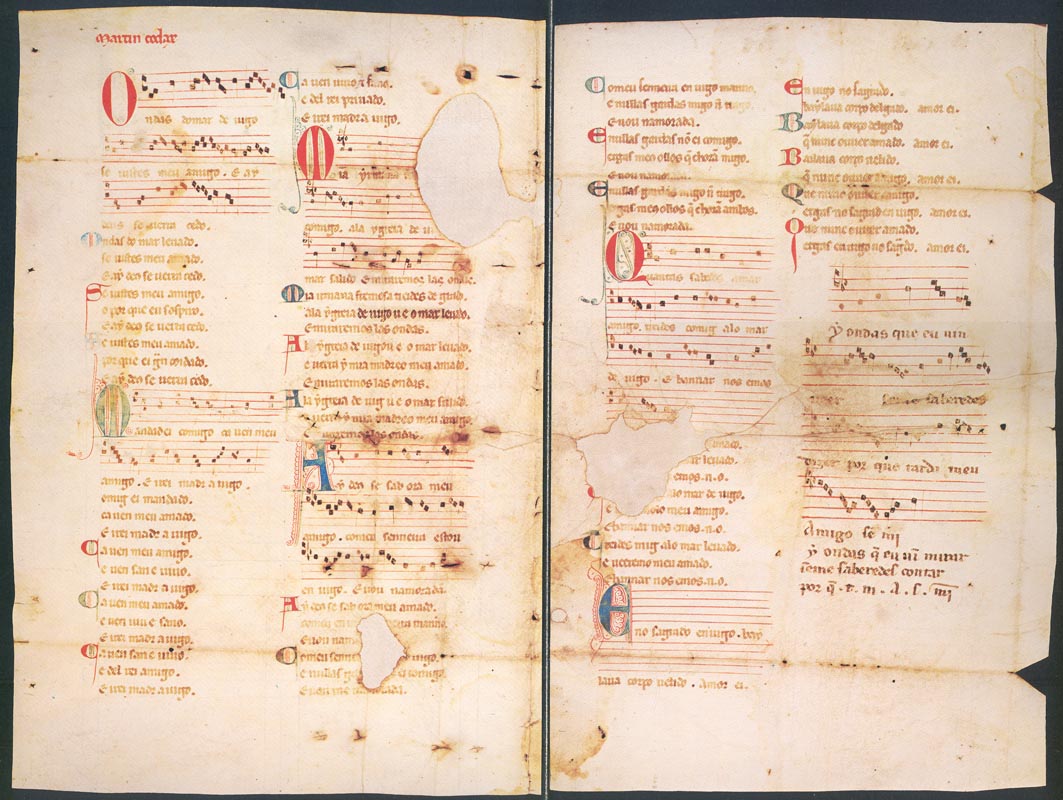 Martin codax
Ondas domar de uigo
se uistes meu amigo. E ay
deus se uerra cedo.
Ondas do mar leuado.
se uistes meu amado.
E ay deus se uerra cedo.
Se uistes meu amigo.
o por que eu sospiro.
E ay deus se uerra cedo.
Se uistes meu amado.
por que ei grã coidado.
E ay deus se uerra cedo.
Mandadei comigo ca uen meu
amigo. E irei madr a uigo.
comig ei mandado.
ca uen meu amado.
E irei madr a uigo.
Ca uen meu amigo.
e uen san e uiuo.
E irei madr a uigo.
Ca uen meu amado.
e uen uiu e sano.
E irei madr a uigo.
Ca uen san e uiuo.
e del rei amigo.
E irei madr a uigo.
Ca uen uiu e sano.
e del rei priuado.
E irei madr a uigo.
Mia yrmana
comigo. ala ygreia de ui
mar salido E miraremos las ondas.
Mia irmana fremosa treides de grado.
ala ygreia de uigo u e o mar leuado.
E miraremos las ondas.
A la ygreia de uigo u e o mar leuado.
e uerra y mia madre o meu amado.
E miraremos las ondas.
A la ygreia de uig u e o mar salido.
e uerra y mia madre o meu amigo.
E miraremos las ondas.
Ay deus se sab ora meu
amigo. comeu senneira estou
en uigo. E uou namorada.
Ay deus se sab ora meu amado.
comeu en uigo senneira manno.
E uou namorada.
Comeu senneira uigo.
e nullas gardas comigo.
E uou namorada.
Comeu senneira en uigo manno.
e nullas gardas migo nõ trago.
E uou namorada.
E nullas gardas nõ ei comigo.
ergas meus ollos q̃ chorã migo.
E uou namorada.
E nullas gardas migo nõ trago.
ergas meus ollos q̃ chorã ambos.
E uou namorada.
Quantas sabedes amar
amigo. treides comig alo mar
de uigo. E bannar nos emos
amado.
mar leuado.
emos. n. o.
alo mar de uigo.
e ueeremo lo meu amigo.
E bannar nos emos. n. o.
Treides mig alo mar leuado.
e ueeremo meu amado.
E bannar nos emos. n. o.
Eno sagrado en uigo. bay
laua corpo uelido. Amor ei.
En uigo no sagrado.
baylaua corpo delgado. amor ei.
Baylaua corpo delgado
q̃ nunc ouuer amado. amor ei.
Bailaua corpo uelido.
q̃ nunc ouuer amigo. amor ei.
Que nunc ouuer amigo.
ergas no sagrad en uigo. amor ei.
Que nunc ouuer amado.
ergas en uigo no sagrado. amor ei.
Ay ondas que eu uin
ueer se me saberedes
dizer por que tarda meu
Amigo se mi
Ay ondas q̃ eu uin mirar
se me saberedes contar
por q̃ . t. m. A. s. mi